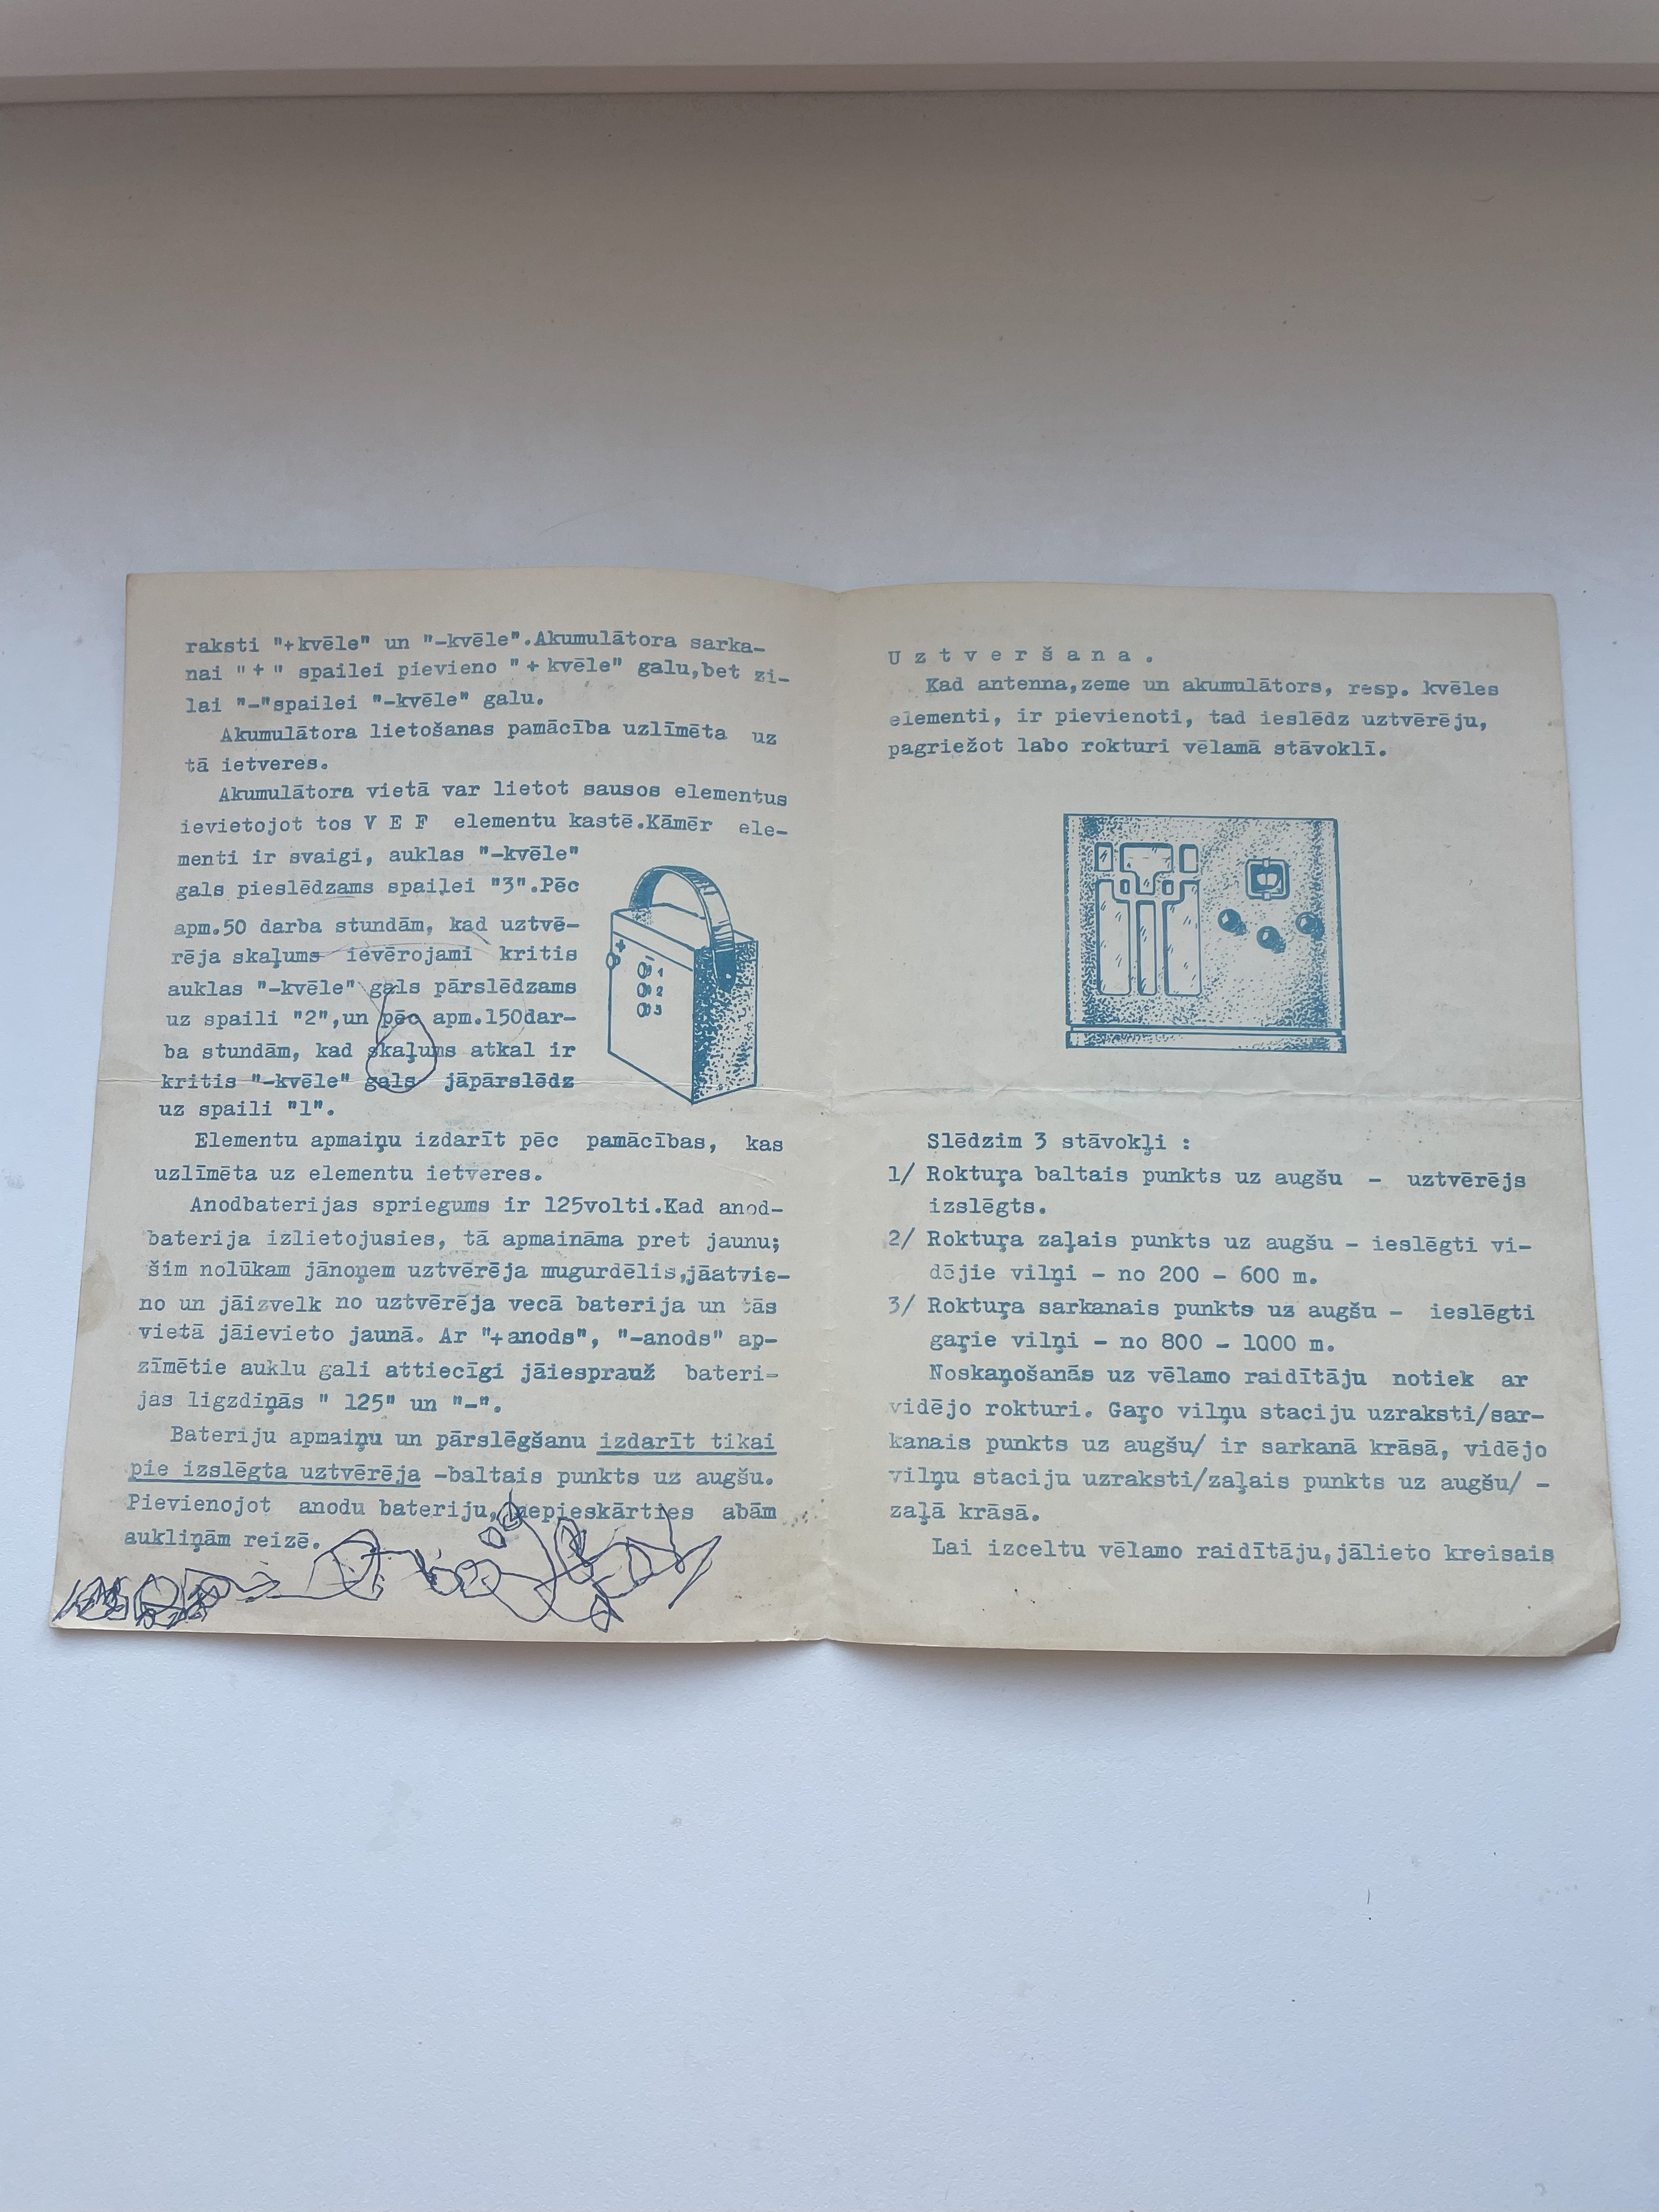 raksti "+kvēle" un "-kvēle".Akumulātora sarka-
nai "+" spailei pievieno "+kvēle" galu,bet zi-
lai "-"spailei "-kvēle" galu.
Akumulātora lietošanas pamācība uzlīmēta uz
tā ietveres.
Akumulātora vietā var lietot sausos elementus
ievietojot tos V E F elementu kastē.Kāmēr ele-
menti ir svaigi, auklas "-kvēle"
gals pieslēdzams spaiļei "3".Pēc
apm.50 darba stundām, kad uztvē-
rēja skaļums ievērojami kritis
auklas "-kvēle" gals pārslēdzams
uz spaili "2",un pēc apm.150dar-
ba stundām, kad skaļums atkal ir
kritis "-kvēle" gals jāpārslēdz
uz spaili "1".
+
-
1
2
3
Elementu apmaiņu izdarīt pēc pamācības, kas
uzlīmēta uz elementu ietveres.
Anodbaterijas spriegums ir 125volti.Kad anod-
baterija izlietojusies, tā apmaināma pret jaunu;
šim nolūkam jānoņem uztvērēja mugurdēlis,jāatvie-
no un jāizvelk no uztvērēja vecā baterija un tās
vietā jāievieto jaunā. Ar "+anods", "-anods" ap-
zīmētie auklu gali attiecīgi jāiesprauž bateri-
jas ligzdiņās " 125" un "-".
Bateriju apmaiņu un pārslēgšanu izdarīt tikai
pie izslēgta uztvērēja -baltais punkts uz augšu.
Pievienojot anodu bateriju, nepieskārties abām
aukliņām reizē.
Uztveršana.
Kad antenna,zeme un akumulātors, resp. kvēles
elementi, ir pievienoti, tad ieslēdz uztvērēju,
pagriežot labo rokturi vēlamā stāvoklī.
Slēdzim 3 stāvokļi :
1/ Roktuŗa baltais punkts uz augšu - uztvērējs
izslēgts.
2/ Roktuŗa zaļais punkts uz augšu - ieslēgti vi-
dējie viļņi - no 200 - 600 m.
3/ Roktuŗa sarkanais punkts uz augšu - ieslēgti
gaŗie viļņi - no 800 - 1000 m.
Noskaņošanās uz vēlamo raidītāju notiek ar
vidējo rokturi. Gaŗo viļņu staciju uzraksti/sar-
kanais punkts uz augšu/ ir sarkanā krāsā, vidējo
viļņu staciju uzraksti/zaļais punkts uz augšu/ -
zaļā krāsā.
Lai izceltu vēlamo raidītāju,jālieto kreisais